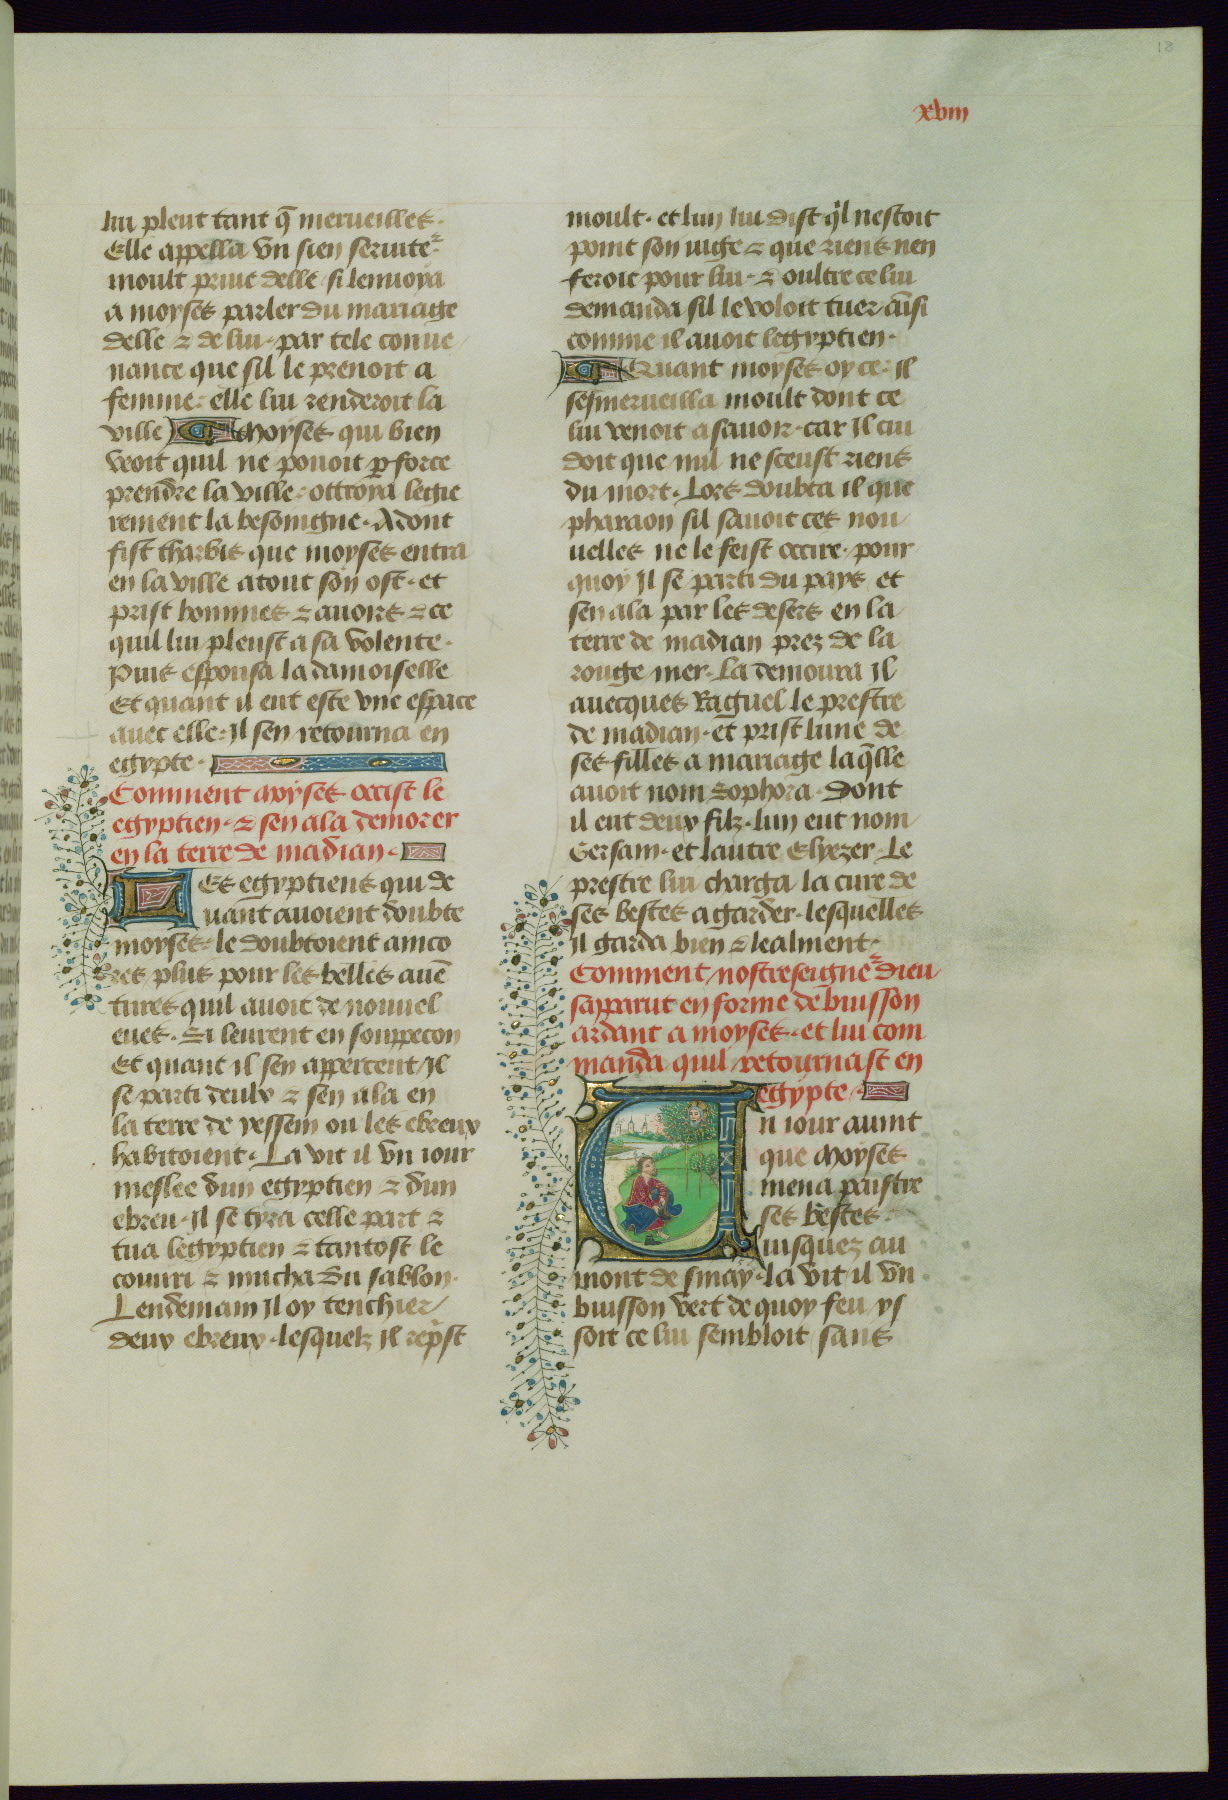 18
xviii
lui pleut tant q̃ merueilles·
Elle appella vn sien seruite²
moult priue delle· si lenuoya
a moyses parler du mariage
delle ⁊ de lui· par tele conue
nance que sil le prenoit a
femme· elle lui renderoit la
ville Moyses qui bien
veoit quil ne pouoit ꝑ force
prendre la ville· ottroya legie
rement la besoingne· Adont
fist tharbis que moyses entra
en la ville atout son ost· et
prist hommes ⁊ auoirs ⁊ ce
quil lui pleust a sa volente·
Puis espousa la damoiselle
Et quant il eut este vne espace
auec elle· Il sen retourna en
egypte·
Comment moyses occist le
egyptien· ⁊ sen ala demorer
en la terre de madian·
Les egyptiens qui de
uant auoient doubte
moyses· le doubtoient ainco
res plus pour les belles auē
tures quil auoit de nouuel
eues· Si leurent en souppecon
Et quant il sen appercent Il
se parti deulx ⁊ sen ala en
la terre de yessem ou les ebreux
habitoient· La vit il vn iour
meslee dun egyptien ⁊ dun
ebreu· Il se tyra celle part ⁊
tua legyptien ⁊ tantost le
couuri ⁊ mucha du sablon·
Lendemain Il oy tenchier
deux ebreux· lesquelz il rep̃st
moult· et lun lui dist q̃l nestoit
point son iuge ⁊ que riens nen
feroit pour lui· ⁊ oultre ce lui
demanda sil le voloit tuer aīsi
comme il auoit legyptien·
Quant moyses oy ce· Il
sesmerueilla moult dont ce
lui venoit a sauoir· car Il cui
doit que nul ne sceust riens
du mort· Lors doubta il que
pharaon sil sauoit ces nou
uelles ne le feist occire· pour
quoy Il se parti du pays et
sen ala par les desers en la
terre de madian prez de la
rouge mer· La demoura Il
auecques Raguel le prestre
de madian· et prist lune de
ses filles a mariage laq̃lle
auoit nom Sophora· Dont
il eut deux filz· lun eut nom
Gersam· et lautre Elyezer Le
prestre lui charga la cure de
ses bestes a garder· lesquelles
Il garda bien ⁊ lealment·
Comment nostre seigne² dieu
sapparut en forme de buisson
ardant a moyses· et lui com
manda quil retournast en
egypte·
Un iour auint
que Moyses
mena paistre
ses bestes
Iusquez au
mont de sinay· la vit il vn
buisson vert de quoy feu ys
soit ce lui sembloit sans